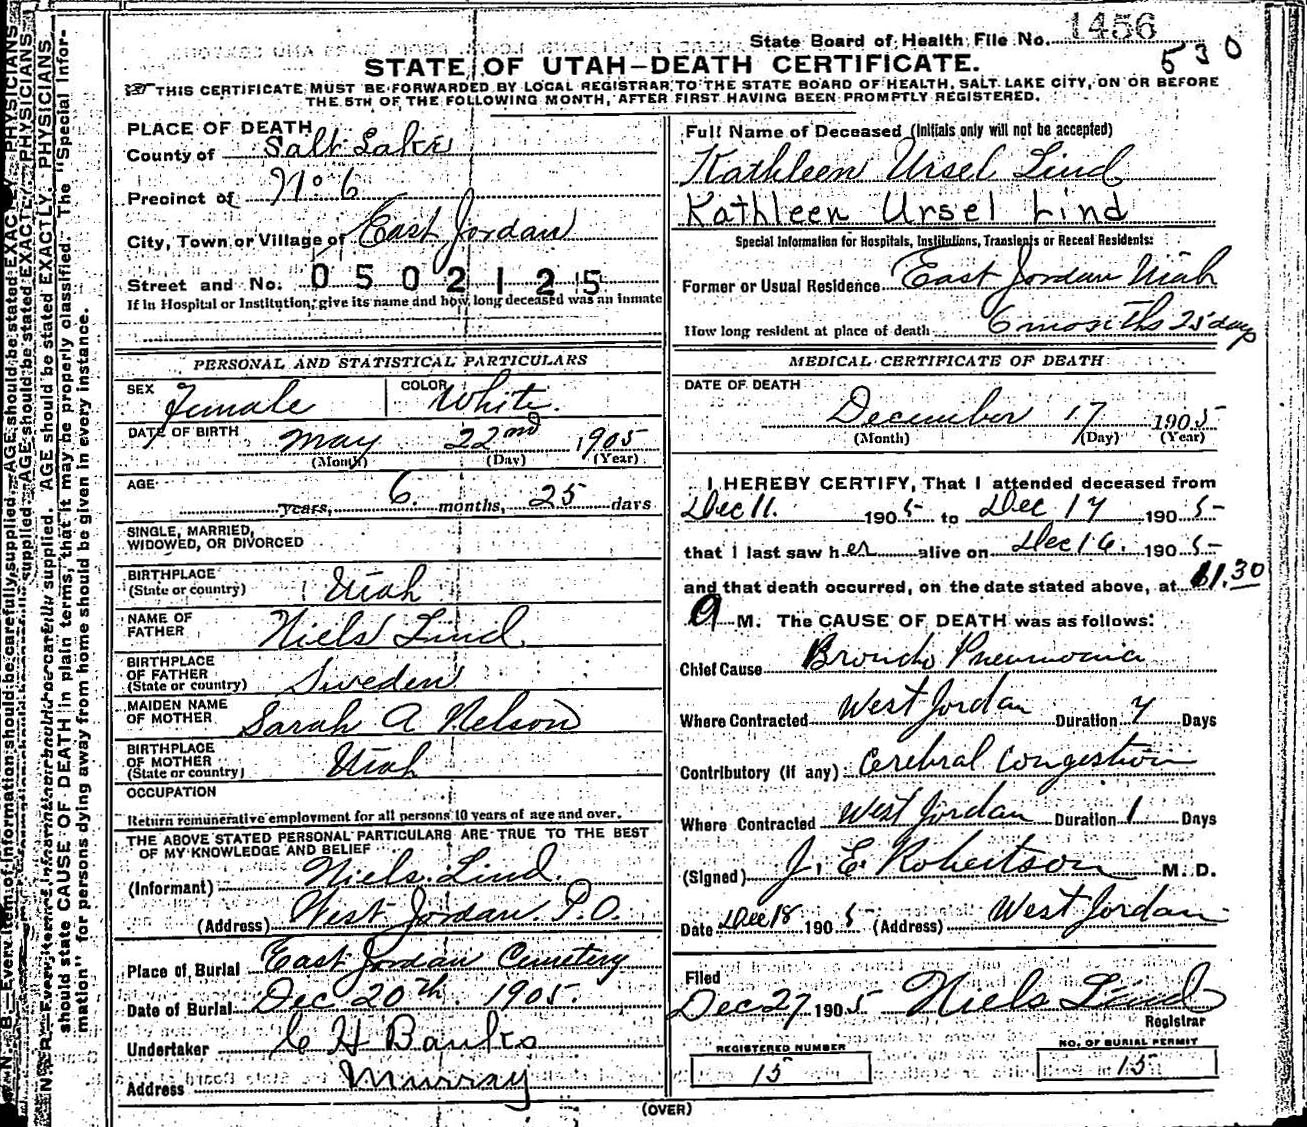 1456
State Board of Health File No.
530
STATE OF UTAH—DEATH CERTIFICATE.
THIS CERTIFICATE MUST BE FORWARDED BY LOCAL REGISTRAR TO THE STATE BOARD OF HEALTH, SALT LAKE CITY, ON OR BEFORE
THE 5TH OF THE FOLLOWING MONTH, AFTER FIRST HAVING BEEN PROMPTLY REGISTERED.
PLACE OF DEATH
County of Salt Lake
Precinct of No 6
City, Town or Village of East Jordan
Street and No. 0502125
If in Hospital or Institution, give its name and how long deceased was an inmate
PERSONAL AND STATISTICAL PARTICULARS
SEX Female COLOR White.
DATE OF BIRTH May 22nd 1905
(Month) (Day) (Year)
AGE
years, 6. months, 25 days
SINGLE, MARRIED,
WIDOWED, OR DIVORCED
BIRTHPLACE
(State or country) Utah
NAME OF
FATHER Niels Lind
BIRTHPLACE
OF FATHER
(State or country) Sweden
MAIDEN NAME
OF MOTHER Sarah A Nelson
BIRTHPLACE
OF MOTHER
(State or country) Utah
OCCUPATION
Return remunerative employment for all persons 10 years of age and over.
THE ABOVE STATED PERSONAL PARTICULARS ARE TRUE TO THE BEST
OF MY KNOWLEDGE AND BELIEF
(Informant) Niels Lind.
(Address) West Jordan. P.O.
Place of Burial East Jordan Cemetery
Date of Burial Dec 20th. 1905.
Undertaker C H Banks
Address Murray
Full Name of Deceased (Initials only will not be accepted)
Kathleen Ursel Lind
Kathleen Ursel Lind
Special Information for Hospitals, Institutions, Transients or Recent Residents:
Former or Usual Residence East Jordan Utah
How long resident at place of death 6 months 25 days
MEDICAL CERTIFICATE OF DEATH
DATE OF DEATH
December 17 1905
(Month) (Day) (Year)
I HEREBY CERTIFY, That I attended deceased from
Dec 11. 1905 to Dec 17 1905
that I last saw her alive on Dec 16. 1905
and that death occurred, on the date stated above, at 11.30
M. The CAUSE OF DEATH was as follows:
Chief Cause Broncho Pneumonia
Where Contracted West Jordan Duration 7 Days
Contributory (if any) Cerebral Congestion
Where Contracted West Jordan Duration 1 Days
(Signed) J. E. Robertson M. D.
Date Dec 18 1905 (Address) West Jordan
Filed
Dec 27 1905 Niels Lind
Registrar
REGISTERED NUMBER
15
NO. OF BURIAL PERMIT
15
(OVER)
N. B.—Every item of information should be carefully supplied. AGE should be stated EXACTLY. PHYSICIANS
should state CAUSE OF DEATH in plain terms, that it may be properly classified. The "Special Infor-
mation" for persons dying away from home should be given in every instance.